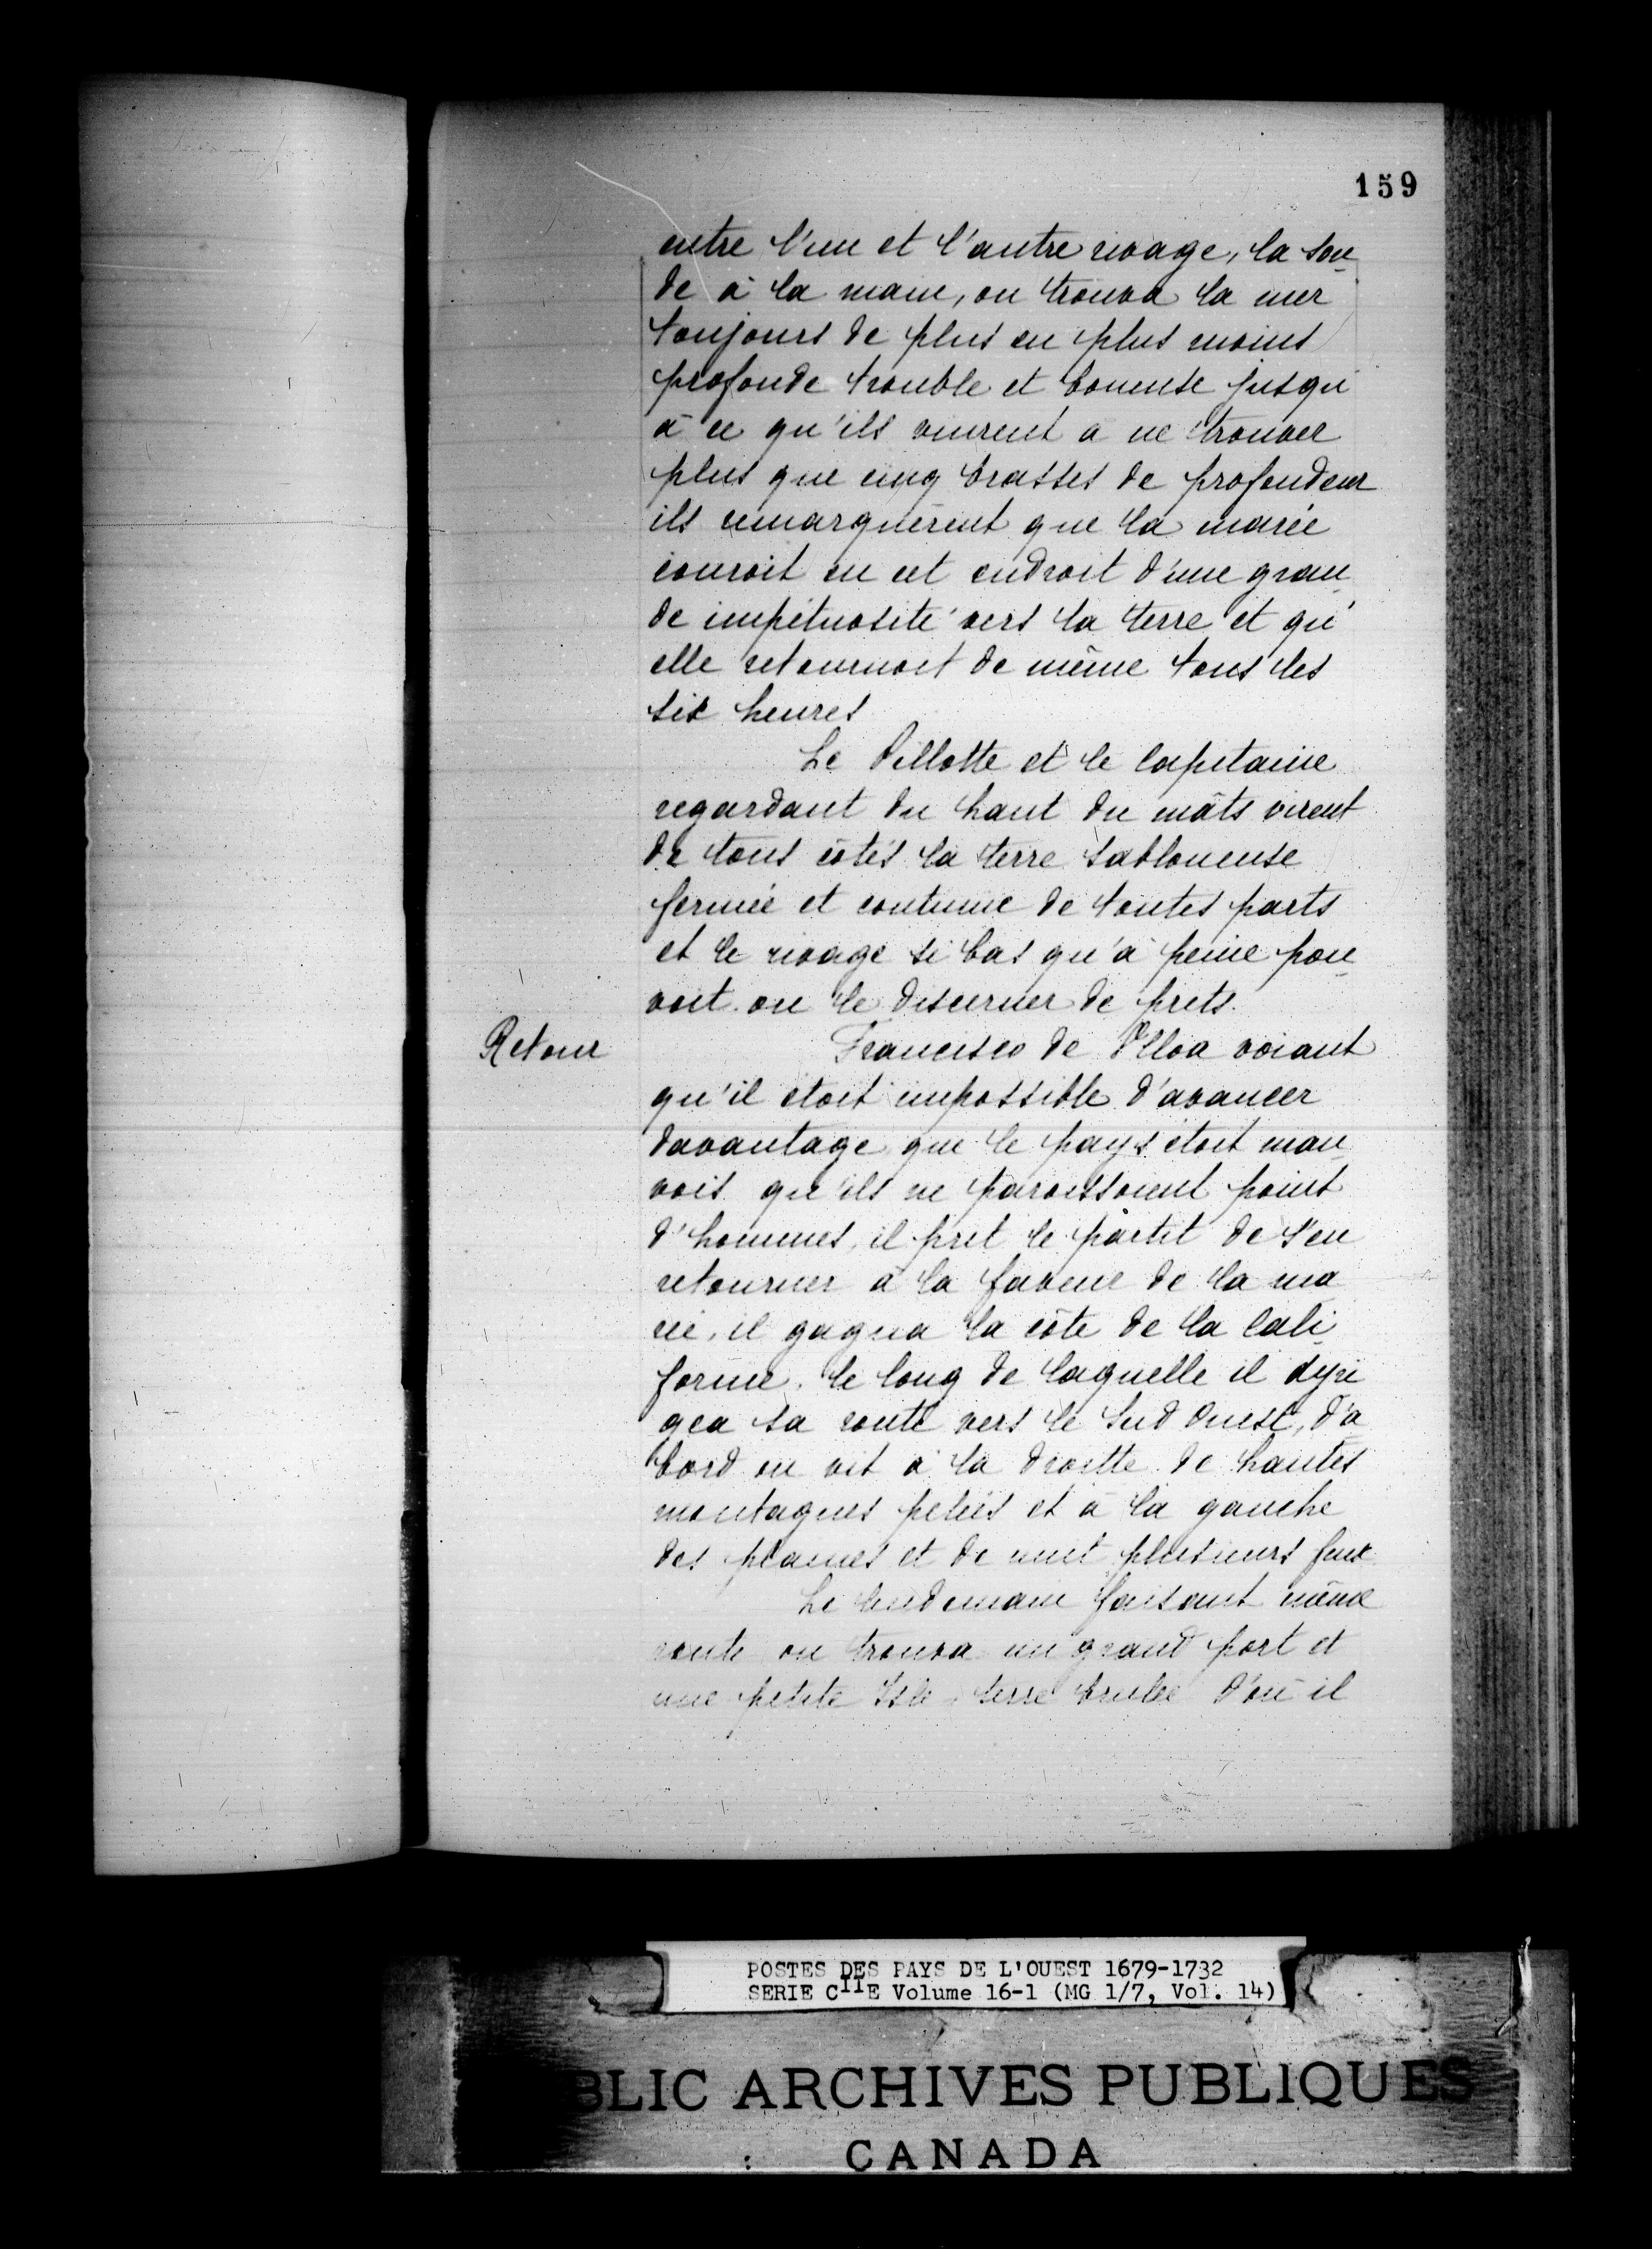 159
entre l'une et l'autre rivage, la son
de à la main, on trouva la mer
toujours de plus en plus moins
profonde trouble et boueuse jusqu'
à ce qu'ils vinrent à ne trouver
plus que cinq brasses de profondeur
ils remarquèrent que la marée
couroit en cet endroit d'une gran
de impétuosité vers la terre et qu'
elle retournoit de même tous les
six heures
Le Pillotte et le Capitaine
regardant du haut du mâts virent
de tous côtés la terre sabloneuse
fermée et continue de toutes parts
et le rivage si bas qu'à peine pou
voit on le discerner de prets.
Retour
Francisco de Ulloa voiant
qu'il etoit impossible d'avancer
davantage que le pays étoit mau
vais qu'ils ne paroissoient point
d'hommes, il prit le partit de s'en
retourner à la faveur de la ma
rée, il gagna la côte de la Cali
fornie. le long de laquelle il dyri
gea sa route vers le Sud Ouest, d'a
bord on vit à la droitte de hautes
montagnes pelées et à la gauche
des plaines et de nuit plusieurs feux
Le lendemain faisant même
route on trouva un grand port et
une petite Isle, terre brulée d'où il
POSTES DES PAYS DE L'OUEST 1679-1732
SERIE C11E Volume 16-1 (MG 1/7, Vol. 14)
BLIC ARCHIVES PUBLIQUES
CANADA